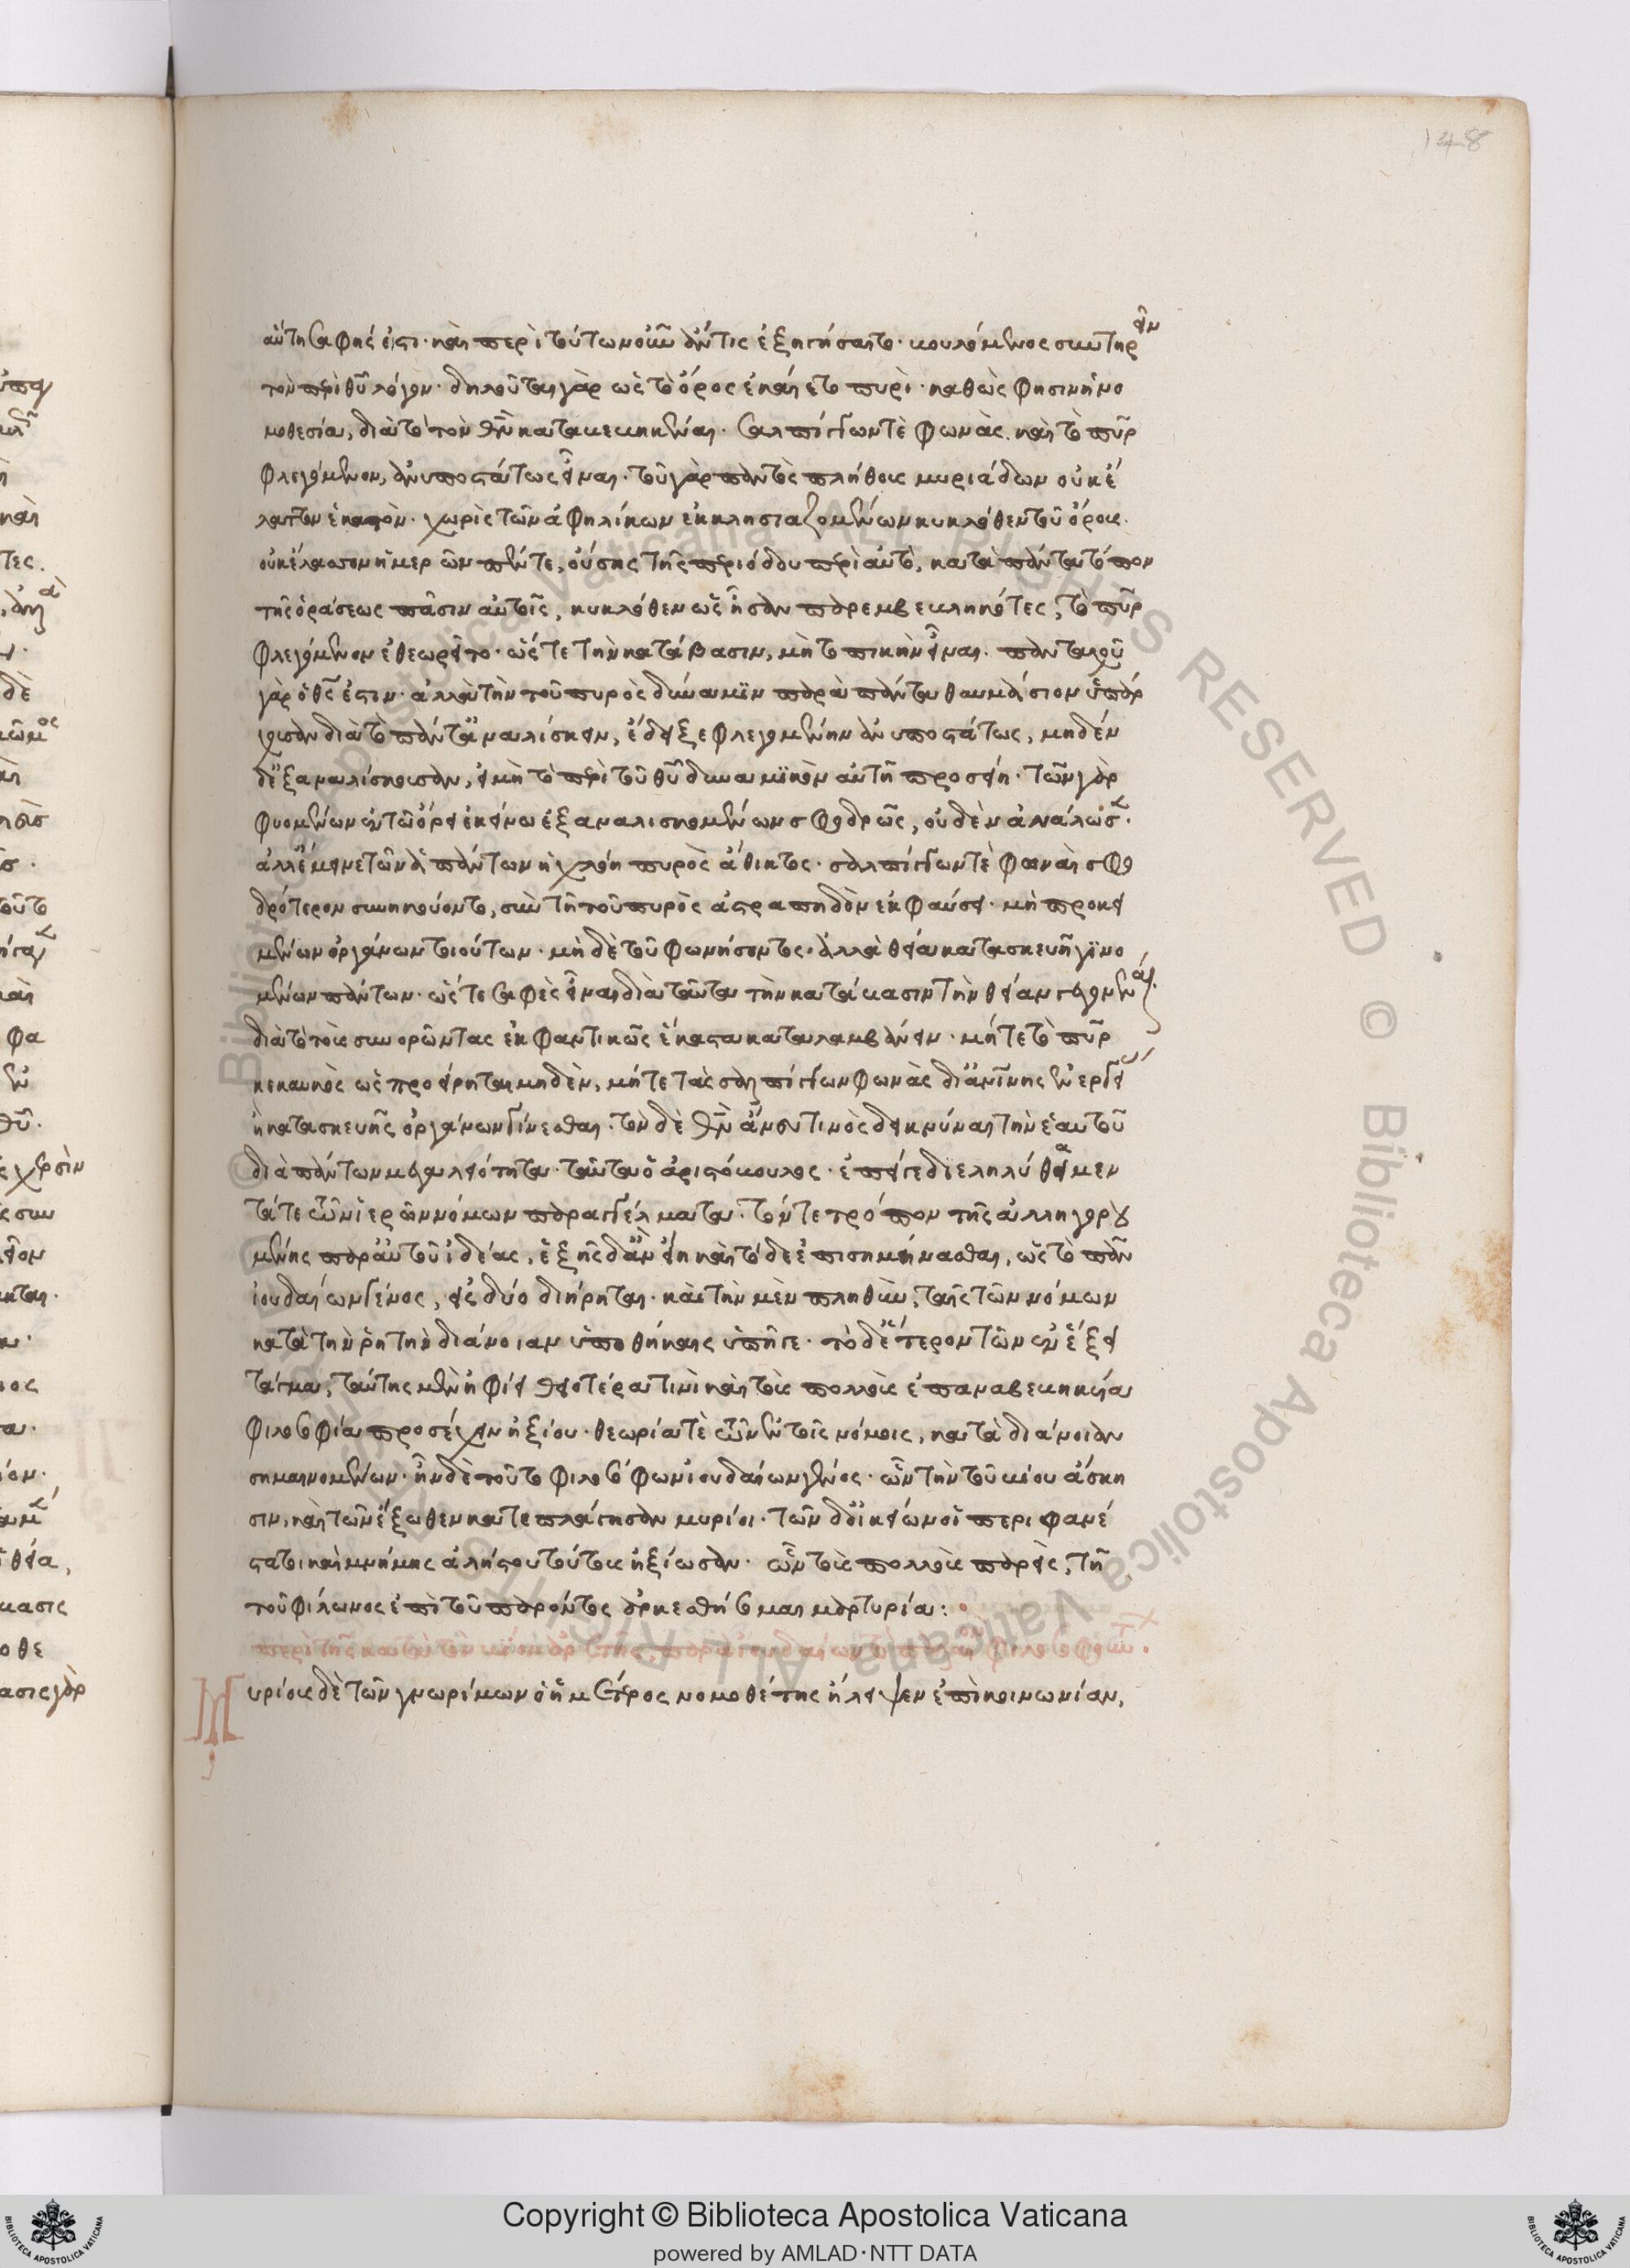 148
αὕτη σαφής ἐστι· καὶ περὶ τούτων οὖν ἄν τις ἐξηγήσαιτο· βουλόμενος συντηρεῖν
τὸν περὶ θῦ λόγον· δηλοῦται γὰρ ὡς τὸ ὄρος ἐκαίετο πυρὶ· καθώς φησιν ἡ νο
μοθεσία, διὰ τὸ τὸν θν καταβεβηκέναι. σαλπίγγων τὲ φωνὰς. καὶ τὸ πῦρ
φλεγόμενον, ἀνυποστάτως εἶναι· τοῦ γὰρ παντὸς πλήθους μυριάδων οὐκ ἔ
λαττον ἑκατὸν· χωρὶς τῶν ἀφηλίκων ἐκκλησιαζομένων κυκλόθεν τοῦ ὄρους.
οὐκ ἔλασσον ἡμερῶν πέντε, οὔσης τῆς περιόδου περὶ αὐτὸ, κατὰ πάντα τόπον
τῆς ὁράσεως πᾶσιν αὐτοῖς, κυκλόθεν ὡς ἦσαν παρεμβεβληκότες, τὸ πῦρ
φλεγόμενον ἐθεωρεῖτο· ὥστε τὴν κατάβασιν, μὴ τοπικὴν εἶναι. πανταχοῦ
γὰρ ὁ θς ἐστιν· ἀλλὰ τὴν τοῦ πυρὸς δύναμιν παρὰ πάντα θαυμάσιον ὑπάρ
χουσαν διὰ τὸ πάντα ἀναλίσκειν, ἔδειξε φλεγομένην ἀνυποστάτως, μηδὲν
δ' ἐξαναλίσκουσαν, εἰ μὴ τὸ περὶ τοῦ θῦ δυναμικὸν αὐτῇ προσείη· τῶν γὰρ
φυομένων ἐν τῷ ὄρει ἐκείνω ἐξαναλισκομένων σφοδρῶς, οὐδὲν ἀνάλωσεν·
ἀλλ' ἔμεινε τῶν ἁπάντων ἡ χλόη πυρὸς ἄθικτος· σαλπίγγων τὲ φωναὶ σφο
δρότερον συνηκούοντο, σὺν τῇ τοῦ πυρὸς ἀστραπηδὸν ἐκφαύσει· μὴ προκει
μένων ὀργάνων τοιούτων· μὴ δὲ τοῦ φωνήσοντος· ἀλλὰ θεία κατασκευῇ γινο
μένων πάντων· ὥστε σαφὲς εἶναι διὰ ταῦτα τὴν κατάβασιν τὴν θείαν γεγονέναι.
διὰ τὸ τοὺς συνορῶντας ἐκφαντικῶς ἕκαστα καταλαμβάνειν· μήτε τὸ πῦρ
κεκαυκὸς ὡς προείρηται μηδὲν, μήτε τὰς σαλπίγγων φωνὰς δι' ἀνθρωπίνης ἐνεργείας
ἢ κατασκευῆς ὀργάνων γίνεσθαι· τὸν δὲ θν ἄνευ τινὸς δεικνύναι τὴν ἑαυτοῦ
διὰ πάντων μεγαλειότητα· ταῦτα ὁ ἀριστόβουλος· ἐπεὶ δὲ διεληλύθαμεν
τά τε τῶν ἱερῶν νόμων παραγγέλματα. τόν τε τρόπον τῆς ἀλληγορου
μένης παρ' αὐτοῖς ἰδέας, ἑξῆς δ' ἂν εἴη καὶ τόδε ἐπισημήνασθαι, ὡς τὸ πᾶν
ἰουδαίων γένος, εἰς δύο διῄρηται· καὶ τὴν μὲν πληθὺν, ταῖς τῶν νόμων
κατὰ τὴν ῥητὴν διάνοιαν ὑποθήκαις ὑπῆγε· τὸ δ' ἕτερον τῶν ἐν ἕξει
τάγμα, ταύτης μὲν ἠφίει θειοτέρα τινὶ καὶ τοῖς πολλοῖς ἐπαναβεβηκυία
φιλοσοφία προσέχειν ἠξίου· θεωρία τὲ τῶν ἐν τοῖς νόμοις, κατὰ διάνοιαν
σημαινομένων· ἦν δὲ τοῦτο φιλοσόφων ἰουδαίων γένος· ὧν τὴν τοῦ βίου ἄσκη
σιν, καὶ τῶν ἔξωθεν κατεπλάγησαν μυρίοι· τῶν δ' οἰκείων οἱ περιφανέ
στατοι καὶ μνήμης ἀλήστου τούτους ἠξίωσαν· ὧν τοῖς πολλοῖς παρεὶς, τῇ
τοῦ φίλωνος ἐπὶ τοῦ παρόντος ἀρκεσθήσομαι μαρτυρία:
περὶ τῆς κατὰ τὸν βίον ἀρετῆς, παρὰ ἰουδαίων τὸ παλαιὸν φιλοσοφούντων.
Μυρίους δὲ τῶν γνωρίμων ὁ ἡμέτερος νομοθέτης ἤλειψεν ἐπὶ κοινωνίαν,
Copyright © Biblioteca Apostolica Vaticana
powered by AMLAD·NTT DATA